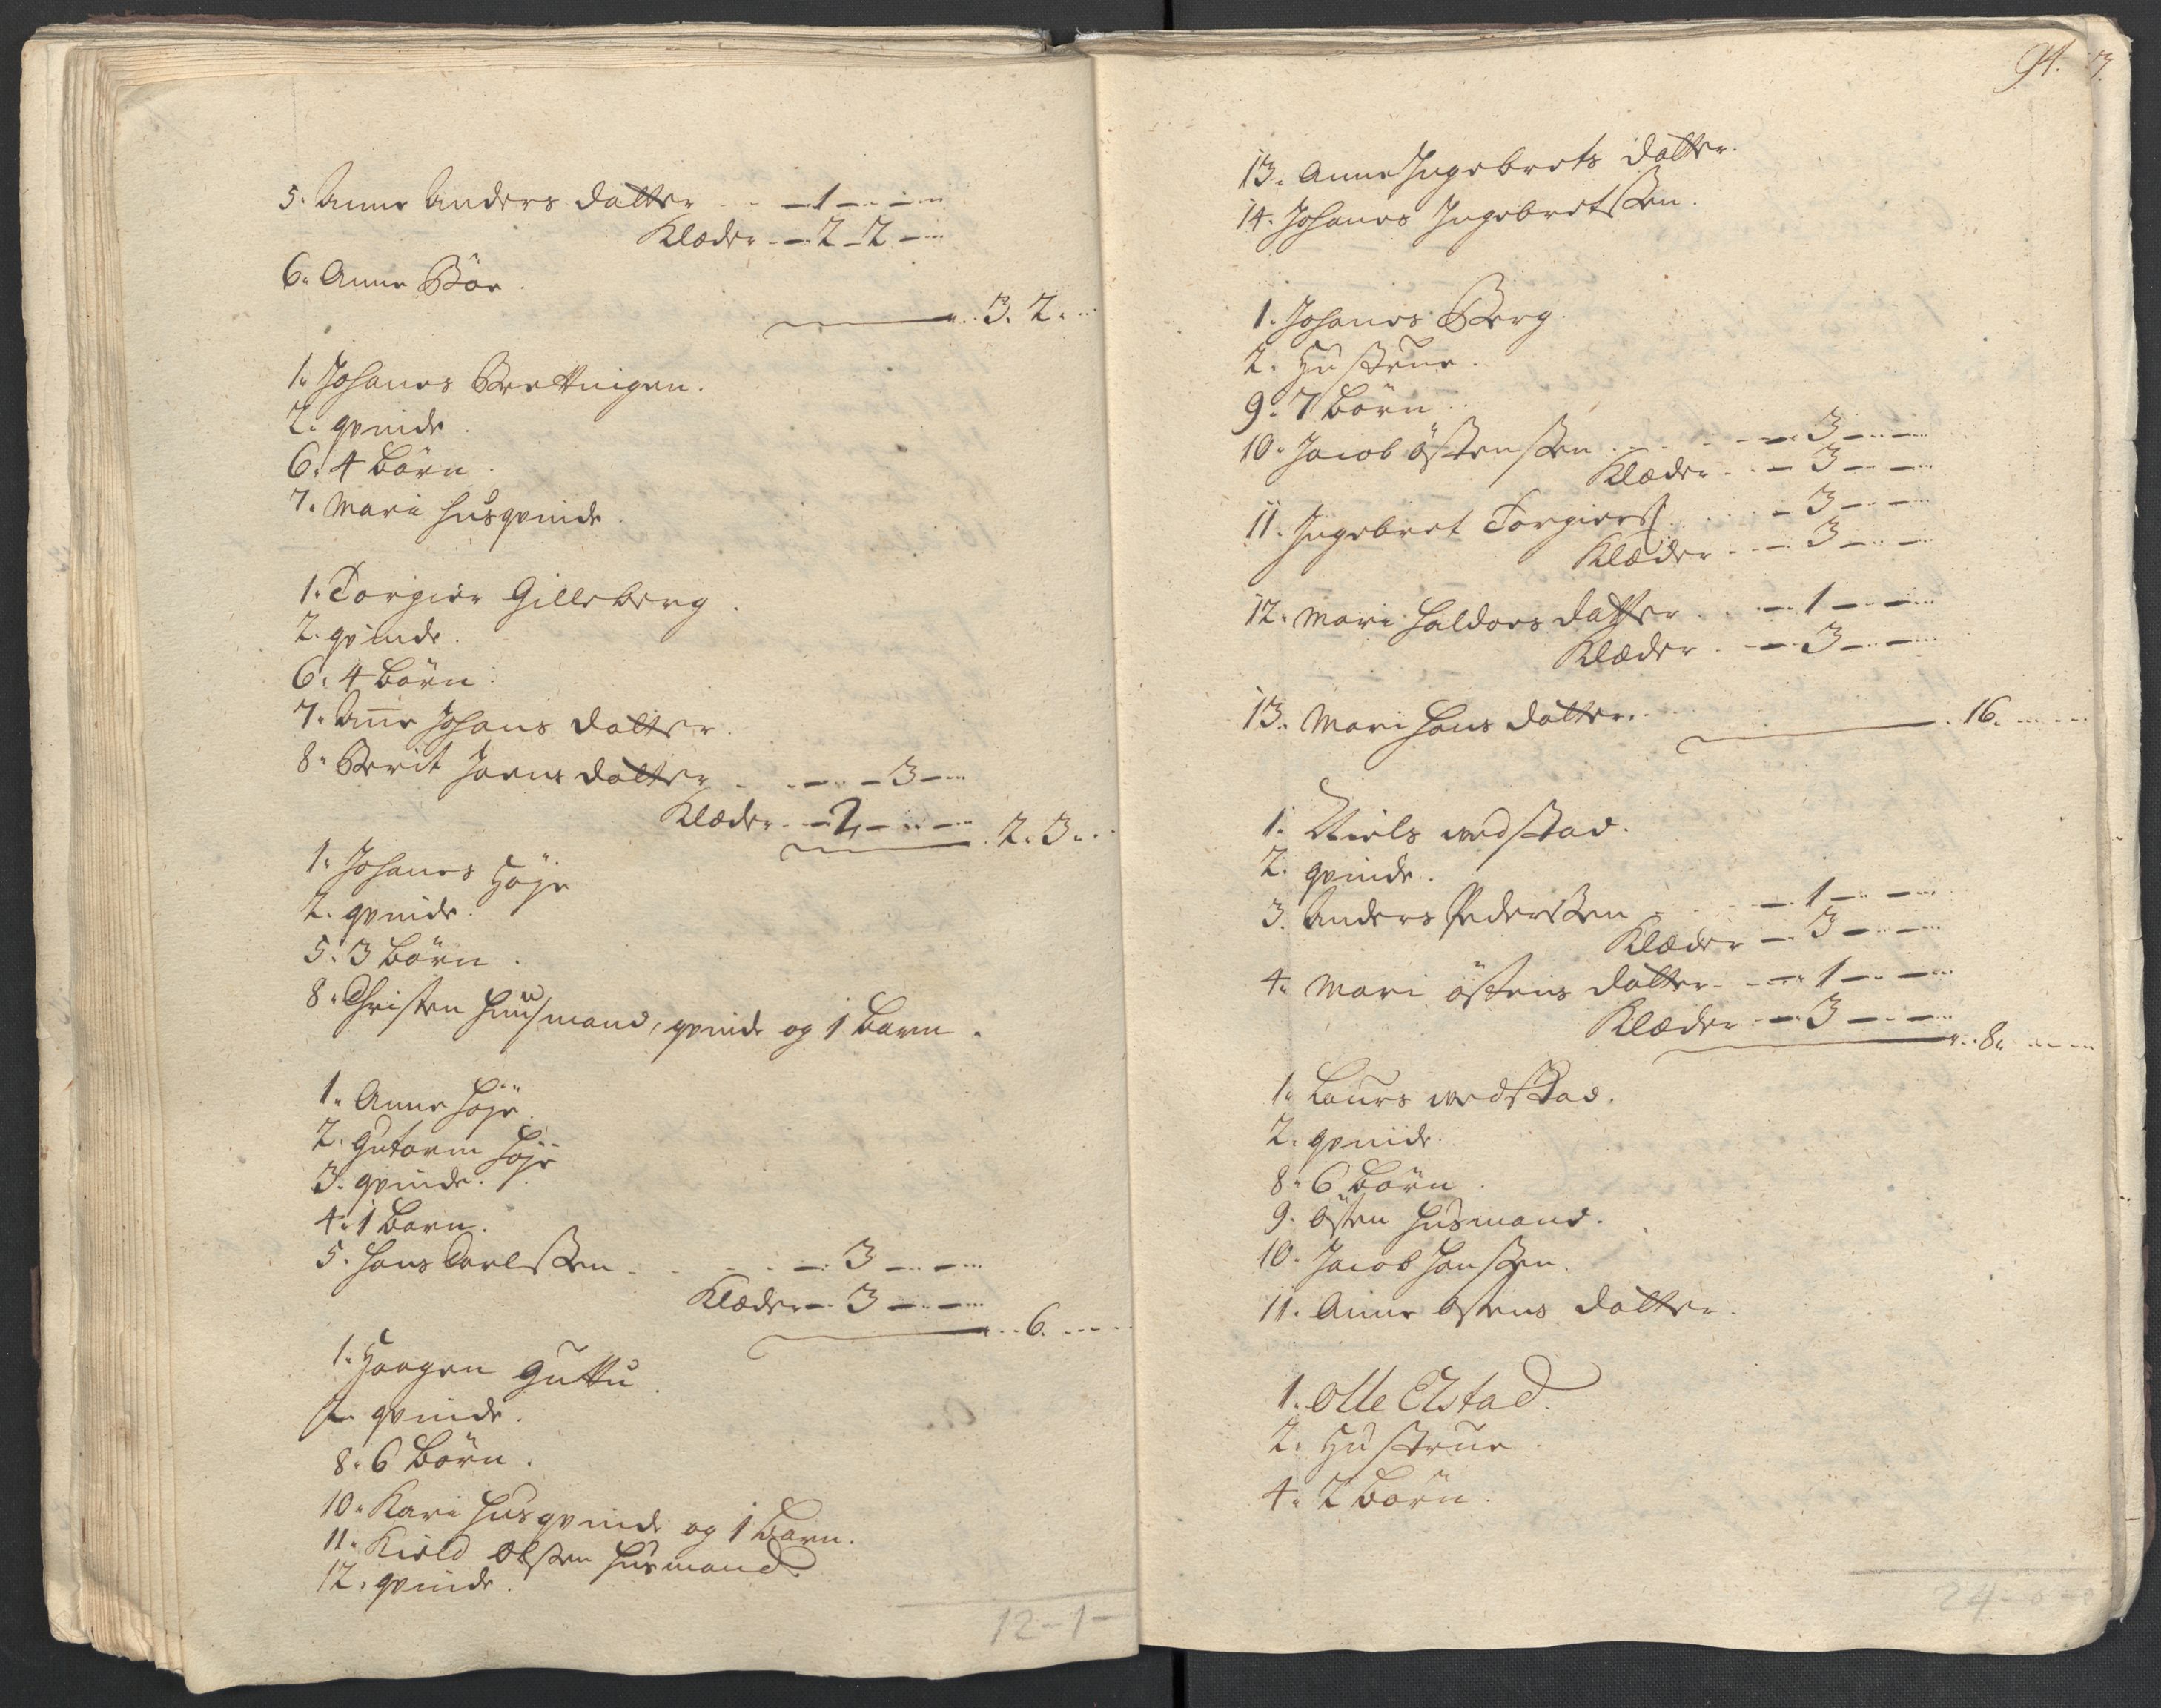 5. Anne Anders datter - - - 1 - - -
Klæder - - 2 - 2 - -
6. Anne Böe.
3. 2.
1. Johanes Brettingen.
2. qvinde.
6. 4 börn.
7. Mari husqvinde.
1. Torgier Gilleberg.
2. qvinde.
6. 4 börn.
7. Anne Johans datter.
8. Berit Joens datter - - - - 3 - -
Klæder - - 2 - - -
2. 3.
1. Johanes Höje
2. qvinde.
5. 3 börn.
8. Christen huusmand, qvinde og 1 barn.
1. Anne Höje.
2. Gutorm Höje
3. qvinde.
4. 1 barn.
5. Hans Carlssen - - - 3 - - -
Klæder - 3 - - -
6.
1. Haagen Guttu.
2. qvinde.
8. 6 börn.
10. Kari husqvinde og 1 barn.
11. Kield Olssen husmand.
12. qvinde.
12 - 1 -
94.
13. Anne Ingebrets datter.
14. Johanes Ingebretssen.
1. Johanes Berg.
2. Hustrue.
9. 7 börn.
10. Jacob Östenssen - - - 3 - - -
Klæder - - 3 - - -
11. Ingebret Torgierss - - 3 - - -
Klæder - - 3 - - -
12. Mari Haldors datter - - 1 - - -
Klæder - - 3 - - -
13. Mari Hans datter.
16.
1. Niels wedstad.
2. qvinde.
3. Anders Pederssen - - 1 - - -
Klæder - 3 - - -
4. Mari Östens datter - - 1 - - -
Klæder - - 3 - - -
8.
1. Laurs wedstad.
2. qvinde.
8. 6 börn.
9. Östen husmand.
10. Jacob Hanssen.
11. Anne Ostens datter.
1. Olle Elstad.
2. Hustrue.
4. 2 börn.
24 - 0 - 0